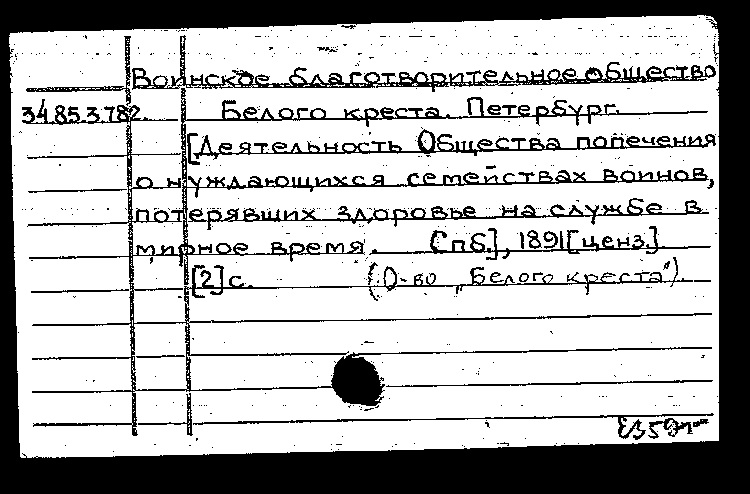 Воинское благотворительное общество
34.85.3.782. Белого креста. Петербург.
[Деятельность Общества попечения
о нуждающихся семействах воинов,
потерявших здоровье на службе в
мирное время. Спб.], 1891 [ценз.].
[2] с. (О-во „Белого креста").